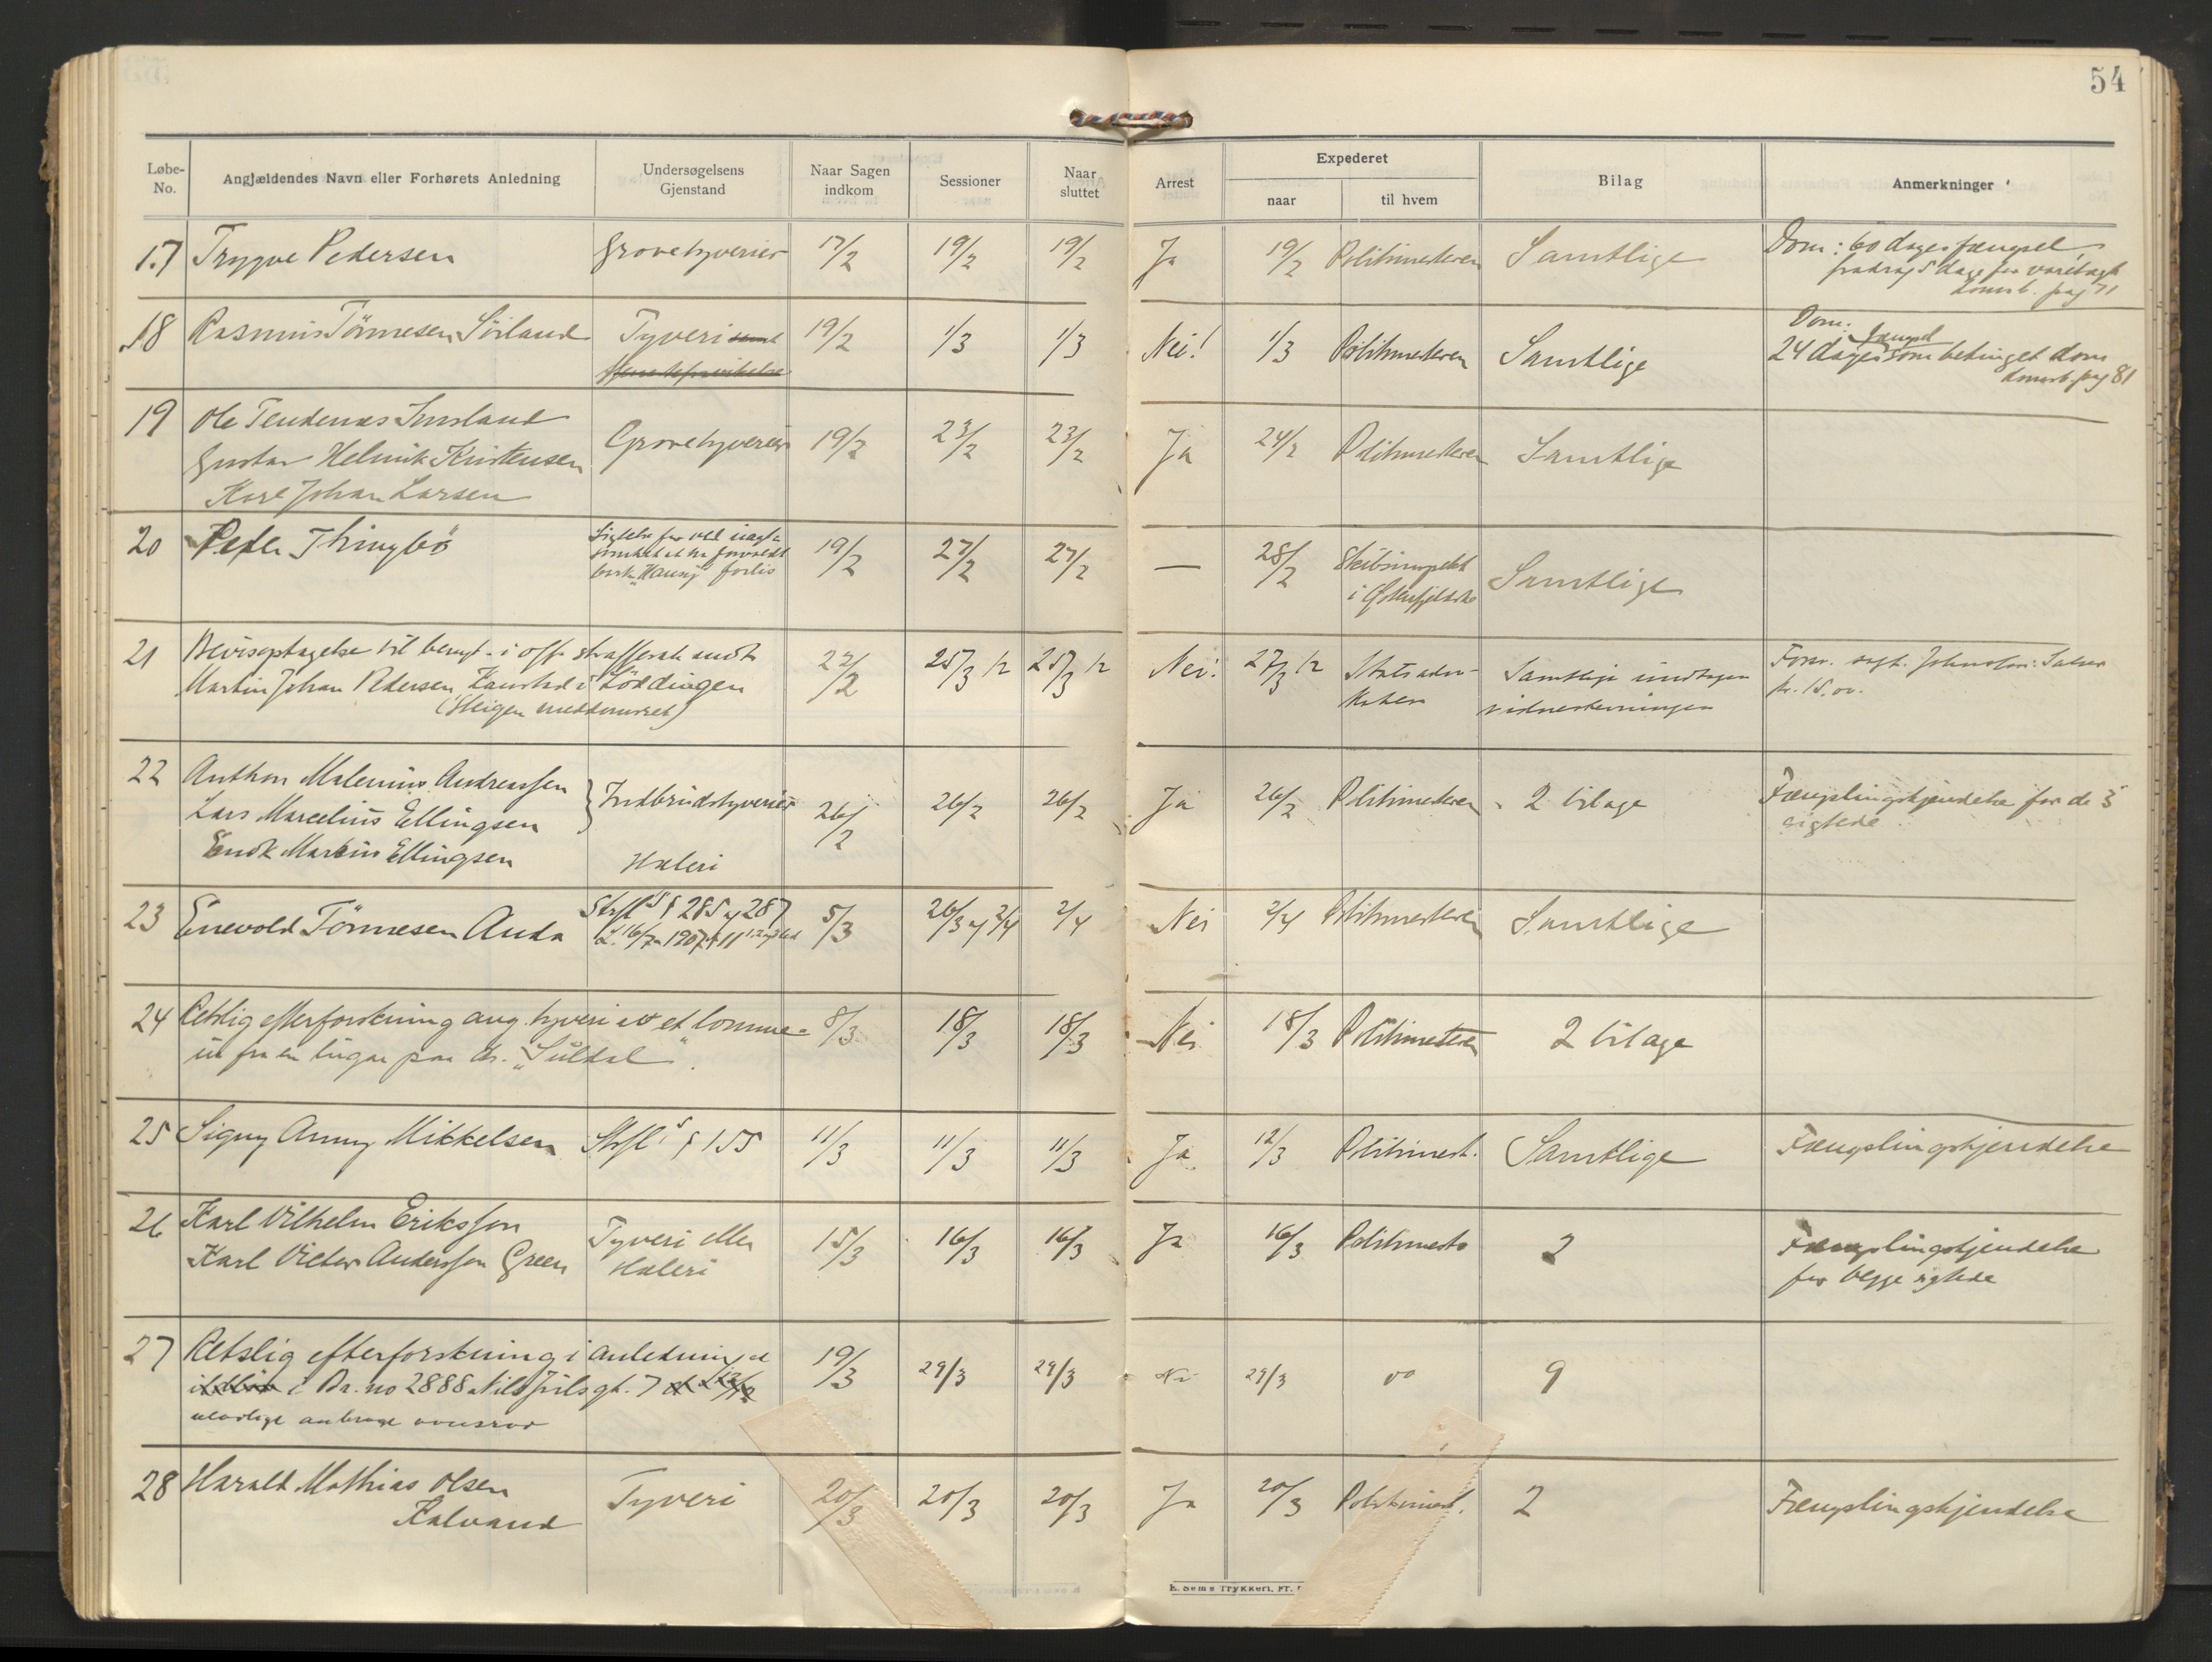 54
Løbe-No.
Angjældendes Navn eller Forhørets Anledning
Undersøgelsens Gjenstand
Naar Sagen indkom
Sessioner
Naar sluttet
Arrest
Expederet
naar
til hvem
Bilag
Anmerkninger
17 Trygve Pedersen Grove tyverier 17/2 19/2 19/2 Ja 19/2 Politimesteren Samtlige Dom: 60 dages fængsel,
fradrag 5 dage for varetægt
domsb. pag 71
18 Rasmus Tönnesen Sörland Tyveri samt 19/2 1/3 1/3 Nei! 1/3 Politimesteren Samtlige Dom:
fængsel
24 dages som betinget dom
domsb. pag 81
19 Ole Tendenæs Imsland
Gustav Helmik Kristensen Grove tyverier 19/2 23/2 23/2 Ja 24/2 Politimesteren Samtlige
Karl Johan Larsen
20 Peder Thingbö 19/2 27/2 27/2 — 28/2 Skibsinspekt
i Østenfjeldske Samtlige
bark "Hansy" forlis
21 Bevisoptagelse til benyt. i off. straffesak mot
Martin Johan Pedersen Kanstad i Löddingen 22/2 25/3 12 25/3 12 Nei! 27/3 12 Statsadvokaten Samtlige undtagen
kr. 15.00.
22 Anthon Malenius Andreassen
Lars Marcelius Ellingsen Indbrudstyverier 26/2 26/2 26/2 Ja 26/2 Politimesteren 2 bilage Fængslingskjendelse for de 3
sigtede
Enok Martin Ellingsen Hæleri
23 Enevold Tönnesen Auda Strfl § 285 og 287
L. 16/7 1907 § 11 5/3 26/3 og 2/4 2/4 Nei 2/4 Politimesteren Samtlige
24 Retslig efterforskning ang. tyveri av et lomme-
ur fra en lugar paa ds. "Suldal". 8/3 18/3 18/3 Nei 18/3 Politimesteren 2 bilage
25 Signy Anny Mikkelsen Strfl § 155 11/3 11/3 11/3 Ja 12/3 Politimest. Samtlige Fængslingskjendelse
26 Karl Vilhelm Eriksson
Karl Victor Andersson Green Tyveri eller
Hæleri 15/3 16/3 16/3 Ja 16/3 Politimest. 2 Fængslingskjendelse
for begge sigtede
27 Retslig efterforskning i anledning
i Br. no 2888 Nils Juils gt. 7 19/3 29/3 29/3 Nei 29/3 9
28 Harald Mathias Olsen
Kalvand Tyveri 20/3 20/3 20/3 Ja 20/3 Politimest. 2 Fængslingskjendelse